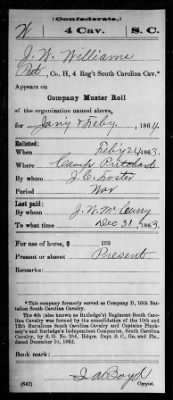 (Confederate.)
W | 4 Cav. | S. C.
J. W. Williams
Pvt, Co. H, 4 Reg't South Carolina Cav.*
Appears on
Company Muster Roll
of the organization named above,
for Jany & Feby, 1864.
Enlisted:
When Feby 26, 1863.
Where Camp Pritchard
By whom J. C. Foster
Period War
Last paid:
By whom J. N. McCurry
To what time Dec 31, 1863.
For use of horse, $
Present or absent Present
Remarks:
*This company formerly served as Company D, 10th Battalion South Carolina Cavalry.
The 4th (also known as Rutledge's) Regiment South Carolina Cavalry was formed by the consolidation of the 10th and 12th Battalions South Carolina Cavalry and Company Pinckney's and Rutledge's Independent Companies, South Carolina Cavalry, by S. O. No. 254, Hdqrs. Dept. S. C., Ga. and Fla., dated December 16, 1862.
Book mark:
(642)
J A Boyd
Copyist.